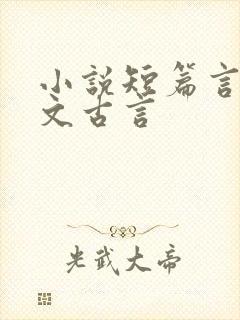 小說短篇言
文古言
光武大帝